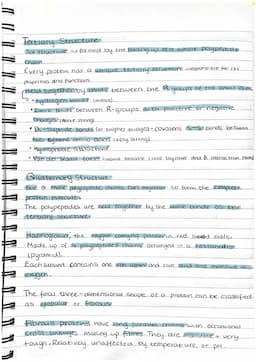 Tertiary Structure
3D structure formed by the folding up of a whole polypeptide
chain.
Every protein has a unique tertiary structure responsible for its
properties and functions.
Held together by bonds between the R groups of the amino acids
• Hydrogen bonds (weak)
• Ionic bonds between R groups with positive or negative
charges (quite strong)
• Disulphide bonds (or sulphur bridges) - covalent bonds between
(very strong)
Quaternary Structure
2 or more polypeptide chains to form the complete
protein molecule.
The polypeptides are held together by the same bonds as the
tertiary structure.
Haemoglobin, the oxygen carrying protein in red blood cells.
Made up of 4 polypeptide chains arranged in a tetrahedral
(pyramid).
Each subunit contains one and can bind one molecule of
oxygen.
The final three-dimensional shape of a protein can be classified
as globular or fibrous
Fibrous proteins have long parallel chains with occasional
cross linkages making up fibres. They are insoluble + very
tough. Relatively unaffected by temperature or pH.